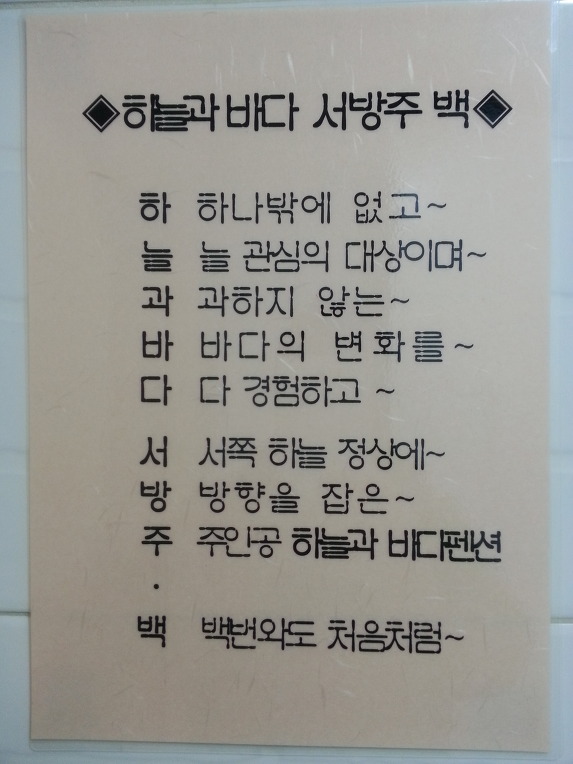 ◈하늘과 바다 서방주 백◈
하 하나밖에 없고~
늘 늘 관심의 대상이며~
과 과하지 않는~
바 바다의 변화를 ~
다 다 경험하고 ~
서 서쪽 하늘 정상에~
방 방향을 잡은~
주 주인공 하늘과 바다펜션
.
백 백번와도 처음처럼~